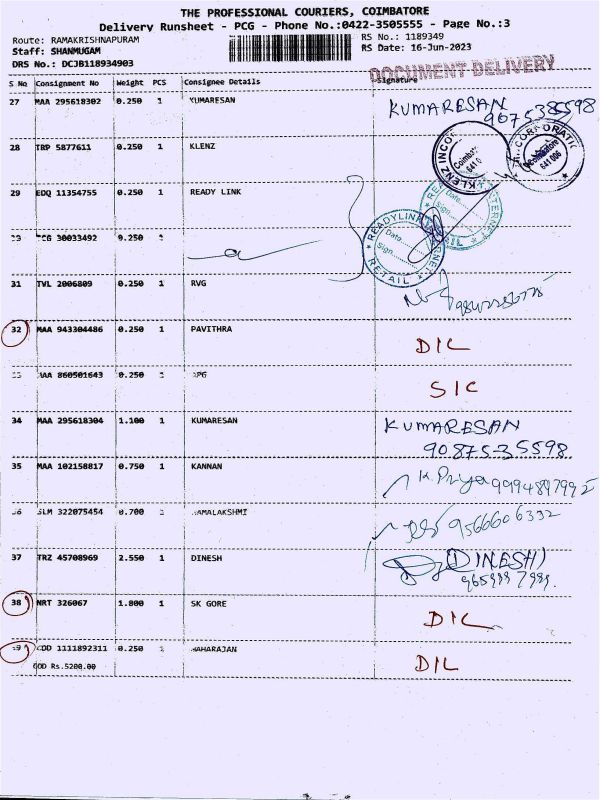 THE PROFESSIONAL COURIERS, COIMBATORE
Delivery Runsheet - PCG - Phone No.:0422-3505555 - Page No.:3
Route: RAMAKRISHNAPURAM RS No.: 1189349
Staff: SHANMUGAM RS Date: 16-Jun-2023
DRS No.: DCJB118934903
DOCUMENT DELIVERY
S No Consignment No Weight PCS Consignee Details Signature
27 MAA 295618302 0.250 1 KUMARESAN KUMARESAN
28 TRP 5877611 0.250 1 KLENZ
29 EDQ 11354755 0.250 1 READY LINK
30033492 0.250
READYLINK
Date
Sign
RETAIL
31 TVL 2006809 0.250 1 RVG
32 MAA 943304486 0.250 1 PAVITHRA DIL
860501643 0.250 SIC
34 MAA 295618304 1.100 1 KUMARESAN KUMARESAN
90875-35598
35 MAA 102158817 0.750 1 KANNAN K. Priya 9994897995
SLM 322075454 0.700 9566606332
37 TRZ 45708969 2.550 1 DINESH (DINESH)
38 NRT 326067 1.800 1 SK GORE DIL
COD 1111892311 0.250 MAHARAJAN DIL
COD Rs.5200.00